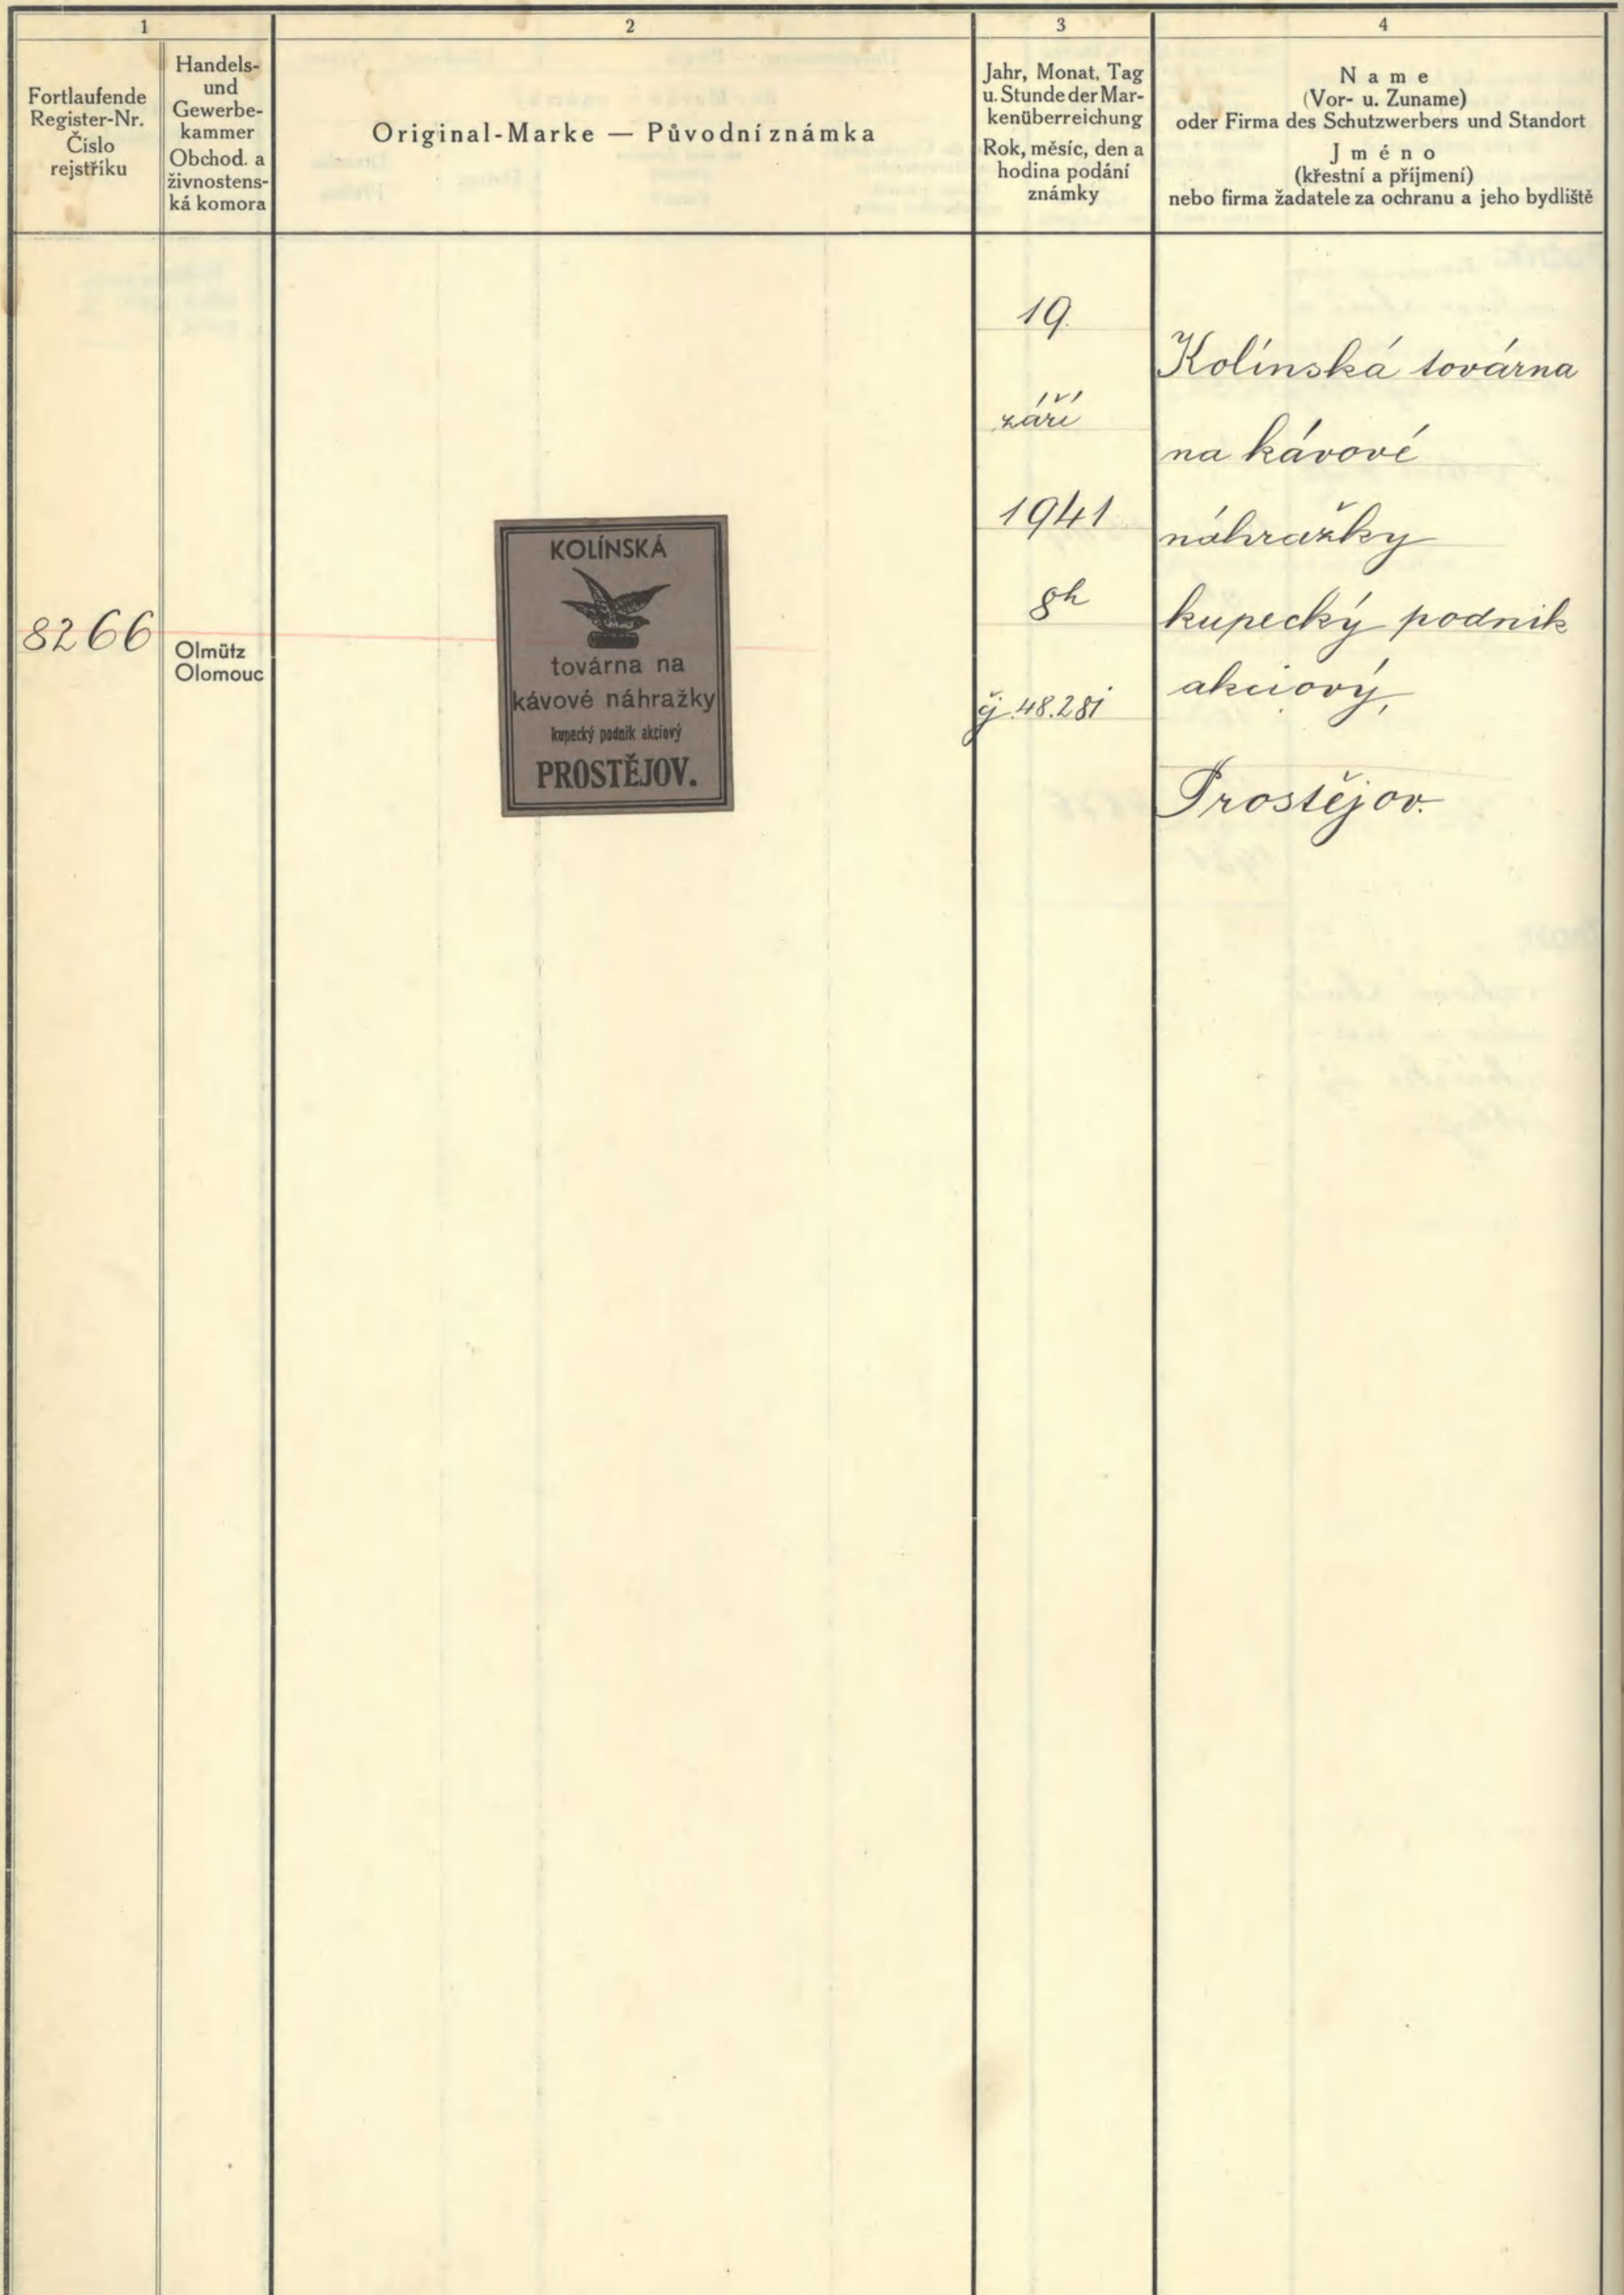 1
2
3
4
Fortlaufende
Register-Nr.
Číslo
rejstříku
Handels-
und
Gewerbe-
kammer
Obchod. a
živnostens-
ká komora
Original-Marke — Původní známka
Jahr, Monat, Tag
u. Stunde der Mar-
kenüberreichung
Rok, měsíc, den a
hodina podání
známky
Name
(Vor- u. Zuname)
oder Firma des Schutzwerbers und Standort
Jméno
(křestní a příjmení)
nebo firma žadatele za ochranu a jeho bydliště
8266
Olmütz
Olomouc
KOLÍNSKÁ
továrna na
kávové náhražky
kupecký podnik akciový
PROSTĚJOV.
19.
září
1941
8h
čj. 48.281
Kolínská továrna
na kávové
náhražky
kupecký podnik
akciový,
Prostějov.